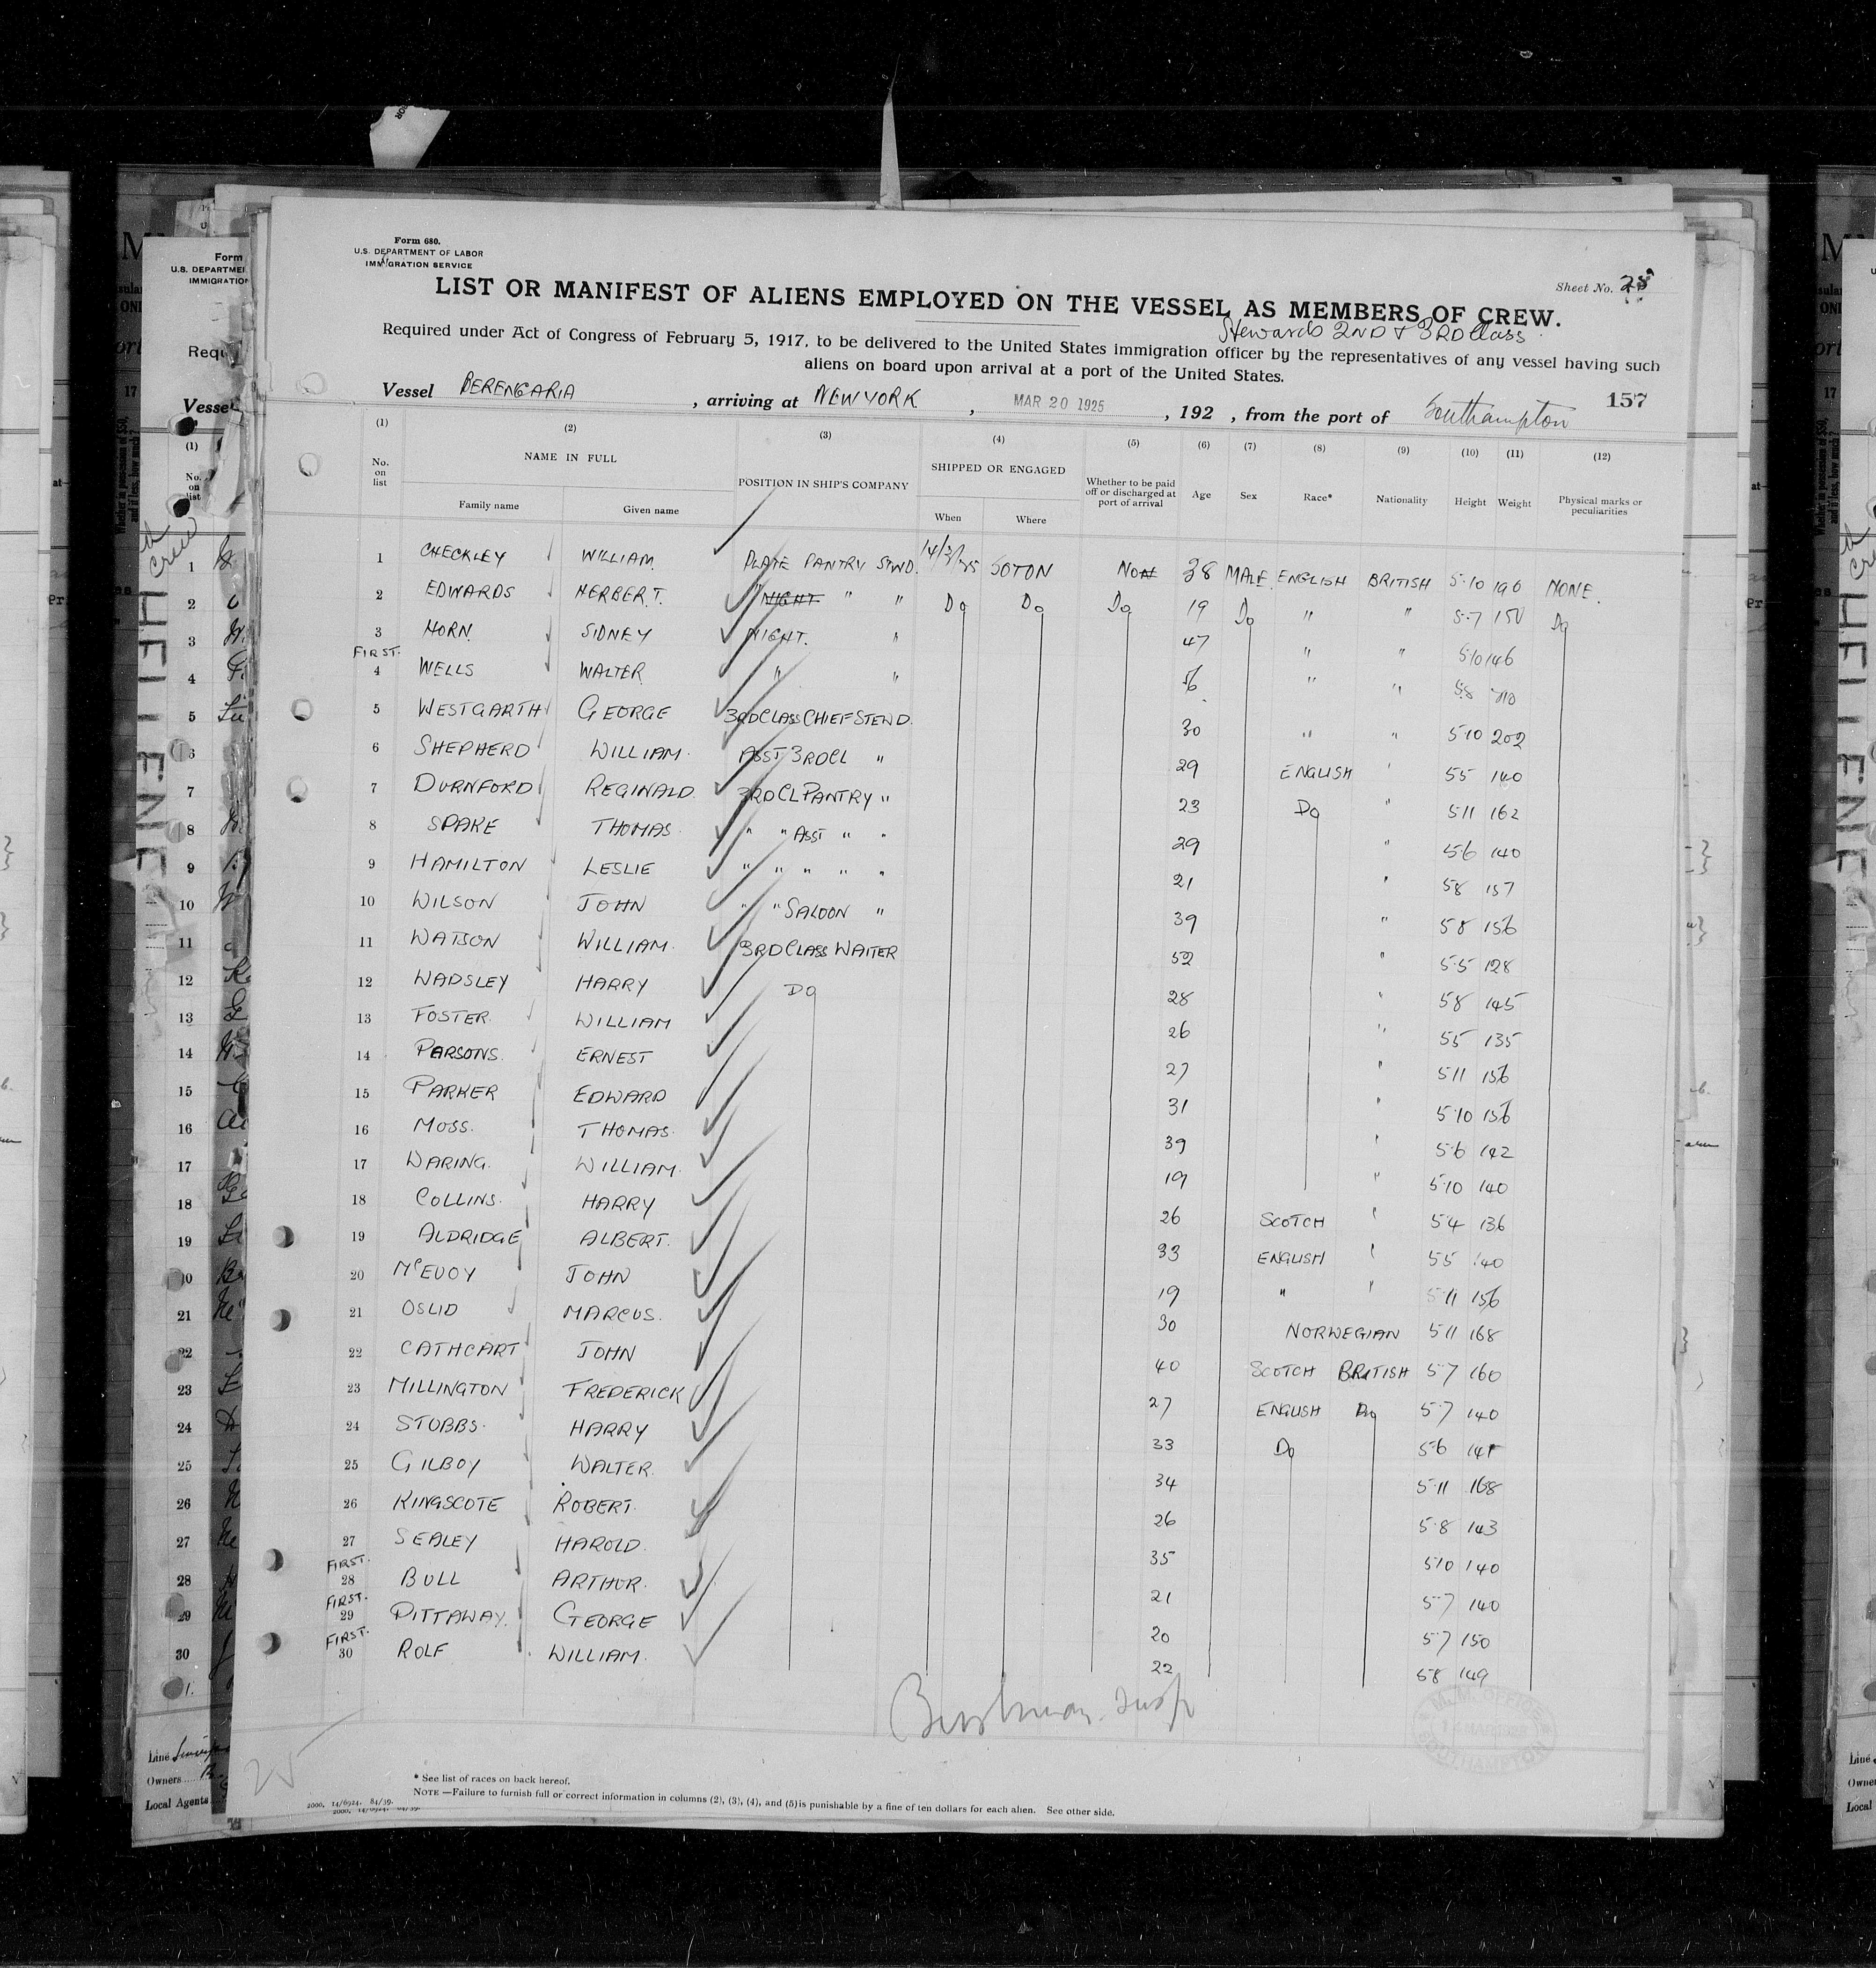 Form 680.
U.S. DEPARTMENT OF LABOR
IMMIGRATION SERVICE
Sheet No. 25
LIST OR MANIFEST OF ALIENS EMPLOYED ON THE VESSEL AS MEMBERS OF CREW.
Stewards 2ND & 3RD Class
Required under Act of Congress of February 5, 1917, to be delivered to the United States immigration officer by the representatives of any vessel having such
aliens on board upon arrival at a port of the United States.
Vessel BERENGARIA, arriving at NEW YORK, MAR 20 1925, 192 , from the port of Southampton 157
(1) (2) (3) (4) (5) (6) (7) (8) (9) (10) (11) (12)
No. on list NAME IN FULL Family name Given name POSITION IN SHIP'S COMPANY SHIPPED OR ENGAGED When Where Whether to be paid off or discharged at port of arrival Age Sex Race* Nationality Height Weight Physical marks or peculiarities
1 CHECKLEY WILLIAM. PLATE PANTRY STWD. 14/3/25 SOTON NO 38 MALE ENGLISH BRITISH 5.10 190 NONE.
2 EDWARDS HERBERT. NIGHT " " Do Do Do 19 Do " " 5.7 150 Do
3 HORN. SIDNEY NIGHT. " 47 " " 5.10 146
FIRST.
4 WELLS WALTER " " 56 " " 5.8
5 WESTGARTH GEORGE 3RD CLASS CHIEF STEWD. 30 " " 5.10 202
6 SHEPHERD WILLIAM. ASST 3RD CL " 29 ENGLISH " 5.5 140
7 DURNFORD REGINALD. 3RD CL PANTRY " 23 Do " 5.11 162
8 SPAKE THOMAS. " " ASST " " 29 " 5.6 140
9 HAMILTON LESLIE " " " " " 21 " 5.8 157
10 WILSON JOHN " " SALOON " 39 " 5.8 156
11 WATSON WILLIAM. 3RD CLASS WAITER 52 " 5.5 128
12 WADSLEY HARRY DO 28 " 5.8 145
13 FOSTER. WILLIAM 26 " 5.5 135
14 PARSONS. ERNEST 27 " 5.11 156
15 PARKER EDWARD 31 " 5.10 156
16 MOSS. THOMAS. 39 " 5.6 142
17 WARING. WILLIAM. 19 " 5.10 140
18 COLLINS. HARRY 26 SCOTCH " 5.4 136
19 ALDRIDGE ALBERT. 33 ENGLISH " 5.5 140
20 McEVOY JOHN 19 " " 5.11 156
21 OSLID MARCUS. 30 NORWEGIAN 5.11 168
22 CATHCART JOHN 40 SCOTCH BRITISH 5.7 160
23 MILLINGTON FREDERICK 27 ENGLISH Do 5.7 140
24 STUBBS. HARRY 33 Do 5.6 141
25 GILBOY WALTER. 34 5.11 168
26 KINGSCOTE ROBERT. 26 5.8 143
27 SEALEY HAROLD. 35 5.10 140
FIRST.
28 BULL ARTHUR. 21 5.7 140
FIRST.
29 PITTAWAY. GEORGE 20 5.7 150
FIRST.
30 ROLF WILLIAM. 22 5.8 149
25
* See list of races on back hereof.
NOTE —Failure to furnish full or correct information in columns (2), (3), (4), and (5) is punishable by a fine of ten dollars for each alien. See other side.
2000. 14/6924. 84/39.